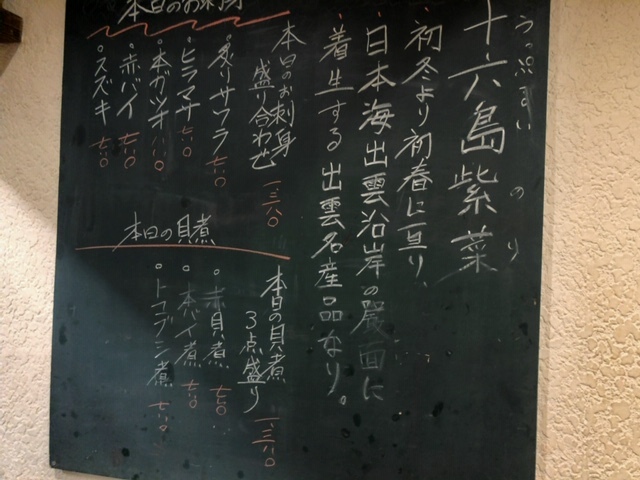 うっぷるい のり
十六島紫菜
・初冬より初春に亘り、
・日本海出雲沿岸の巌面に
・着生する出雲名産品なり。
本日のお刺身
本日のお刺身
盛り合わせ 一、三八〇
。炙りサワラ 七八〇
。ヒラマサ 七八〇
。本ガツオ 八八〇
。赤バイ 七八〇
。スズキ 七八〇
本日の貝煮
本日の貝煮
3点盛り 一、三八〇
。赤貝煮 七八〇
。本バイ煮 七八〇
。トコブシ煮 七八〇